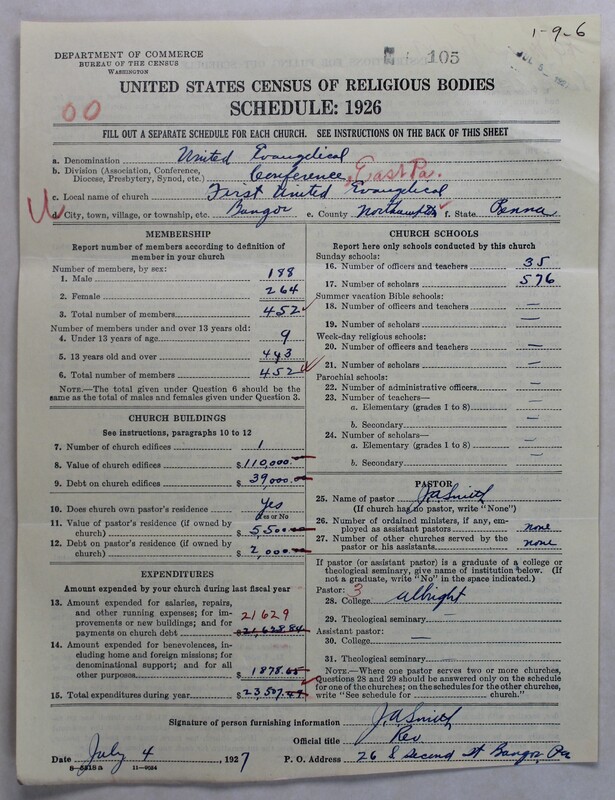 1-9-6
105
DEPARTMENT OF COMMERCE
BUREAU OF THE CENSUS
WASHINGTON
UNITED STATES CENSUS OF RELIGIOUS BODIES
SCHEDULE: 1926
00
FILL OUT A SEPARATE SCHEDULE FOR EACH CHURCH. SEE INSTRUCTIONS ON THE BACK OF THIS SHEET
a. Denomination United Evangelical
b. Division (Association, Conference, Diocese, Presbytery, Synod, etc.) Conference, East Pa.
c. Local name of church First United Evangelical
d. City, town, village, or township, etc. Bangor e. County Northampton f. State Penna
MEMBERSHIP
Report number of members according to definition of member in your church
Number of members, by sex:
1. Male 188
2. Female 264
3. Total number of members 452
Number of members under and over 13 years old:
4. Under 13 years of age 9
5. 13 years old and over 443
6. Total number of members 452
NOTE.—The total given under Question 6 should be the same as the total of males and females given under Question 3.
CHURCH BUILDINGS
See instructions, paragraphs 10 to 12
7. Number of church edifices 1
8. Value of church edifices $110,000.
9. Debt on church edifices $39,000.
10. Does church own pastor's residence Yes
Yes or No
11. Value of pastor's residence (if owned by church) $5,500
12. Debt on pastor's residence (if owned by church) $2,000
EXPENDITURES
Amount expended by your church during last fiscal year
13. Amount expended for salaries, repairs, and other running expenses; for improvements or new buildings; and for payments on church debt 21629 $21,628.84
14. Amount expended for benevolences, including home and foreign missions; for denominational support; and for all other purposes $1878.65
15. Total expenditures during year $23507.49
CHURCH SCHOOLS
Report here only schools conducted by this church
Sunday schools:
16. Number of officers and teachers 35
17. Number of scholars 576
Summer vacation Bible schools:
18. Number of officers and teachers —
19. Number of scholars —
Week-day religious schools:
20. Number of officers and teachers —
21. Number of scholars —
Parochial schools:
22. Number of administrative officers —
23. Number of teachers—
a. Elementary (grades 1 to 8) —
b. Secondary —
24. Number of scholars—
a. Elementary (grades 1 to 8) —
b. Secondary —
PASTOR
25. Name of pastor J.A. Smith
(If church has no pastor, write "None")
26. Number of ordained ministers, if any, employed as assistant pastors none
27. Number of other churches served by the pastor or his assistants none
If pastor (or assistant pastor) is a graduate of a college or theological seminary, give name of institution below. (If not a graduate, write "No" in the space indicated.)
Pastor: 3
28. College Albright
29. Theological seminary —
Assistant pastor:
30. College —
31. Theological seminary —
NOTE.—Where one pastor serves two or more churches, Questions 28 and 29 should be answered only on the schedule for one of the churches; on the schedules for the other churches, write "See schedule for church."
Signature of person furnishing information J.A. Smith
Official title Rev
Date July 4, 1927 P. O. Address 26 S Second St Bangor, Pa
11-9124